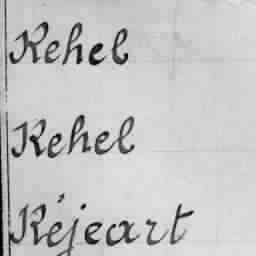 Kehel
Kehel
Kéjeart